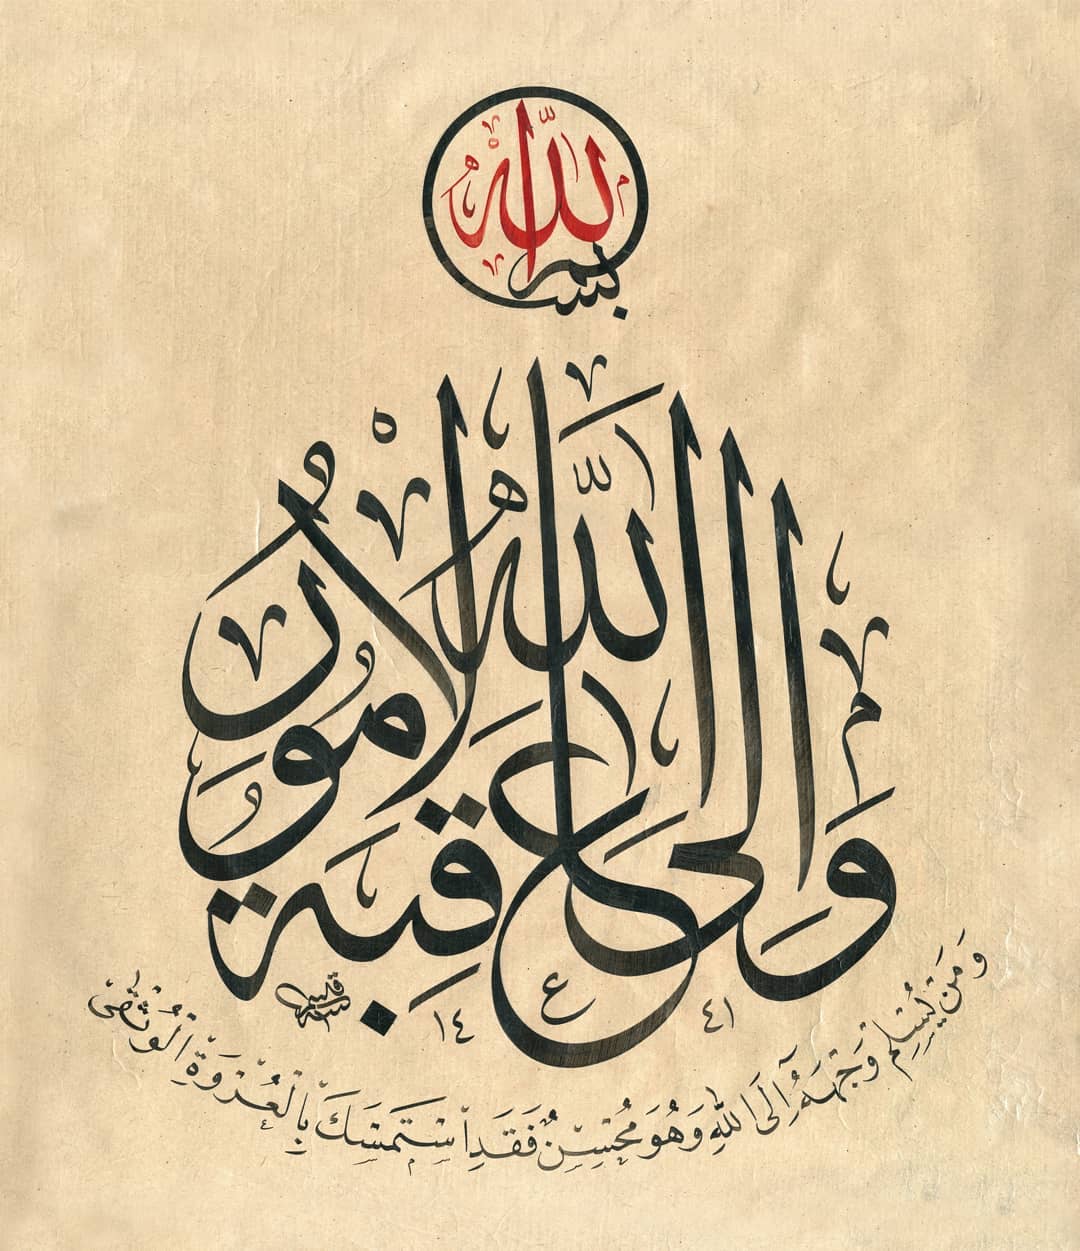 بسم الله
وَإِلَى اللَّهِ عَاقِبَةُ الْأُمُورِ
١٤ ٤١
وَمَنْ يُسْلِمْ وَجْهَهُ إِلَى اللَّهِ وَهُوَ مُحْسِنٌ فَقَدِ اسْتَمْسَكَ بِالْعُرْوَةِ الْوُثْقَىٰ